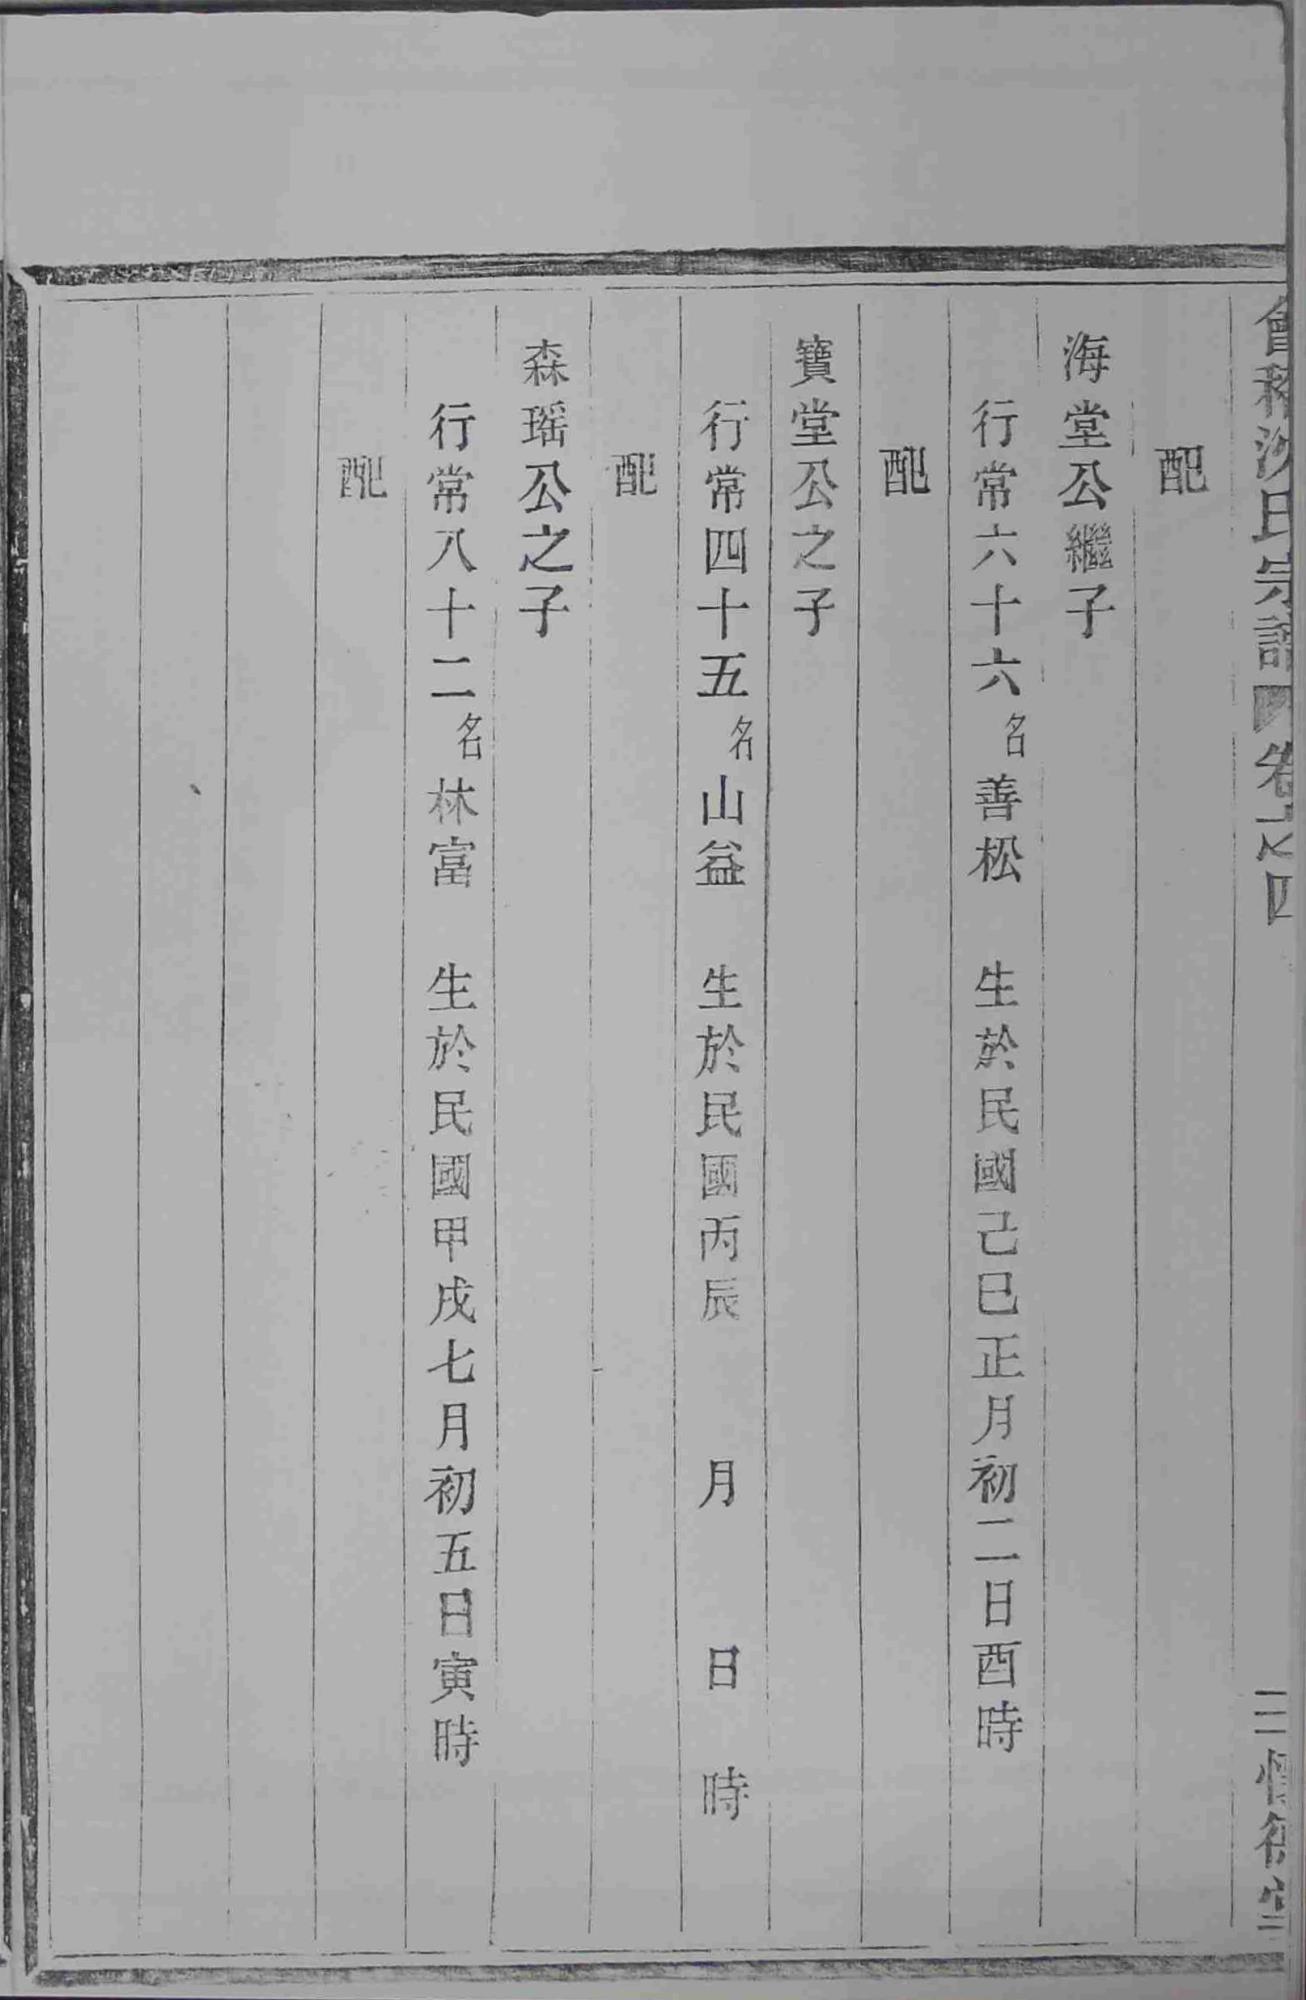 會稽沈氏宗譜 卷之四 三 德堂
配
海堂公繼子
行常六十六名善松 生於民國己巳正月初二日酉時
配
寶堂公之子
行常四十五名山益 生於民國丙辰 月 日 時
配
森瑤公之子
行常八十二名林富 生於民國甲戌七月初五日寅時
配